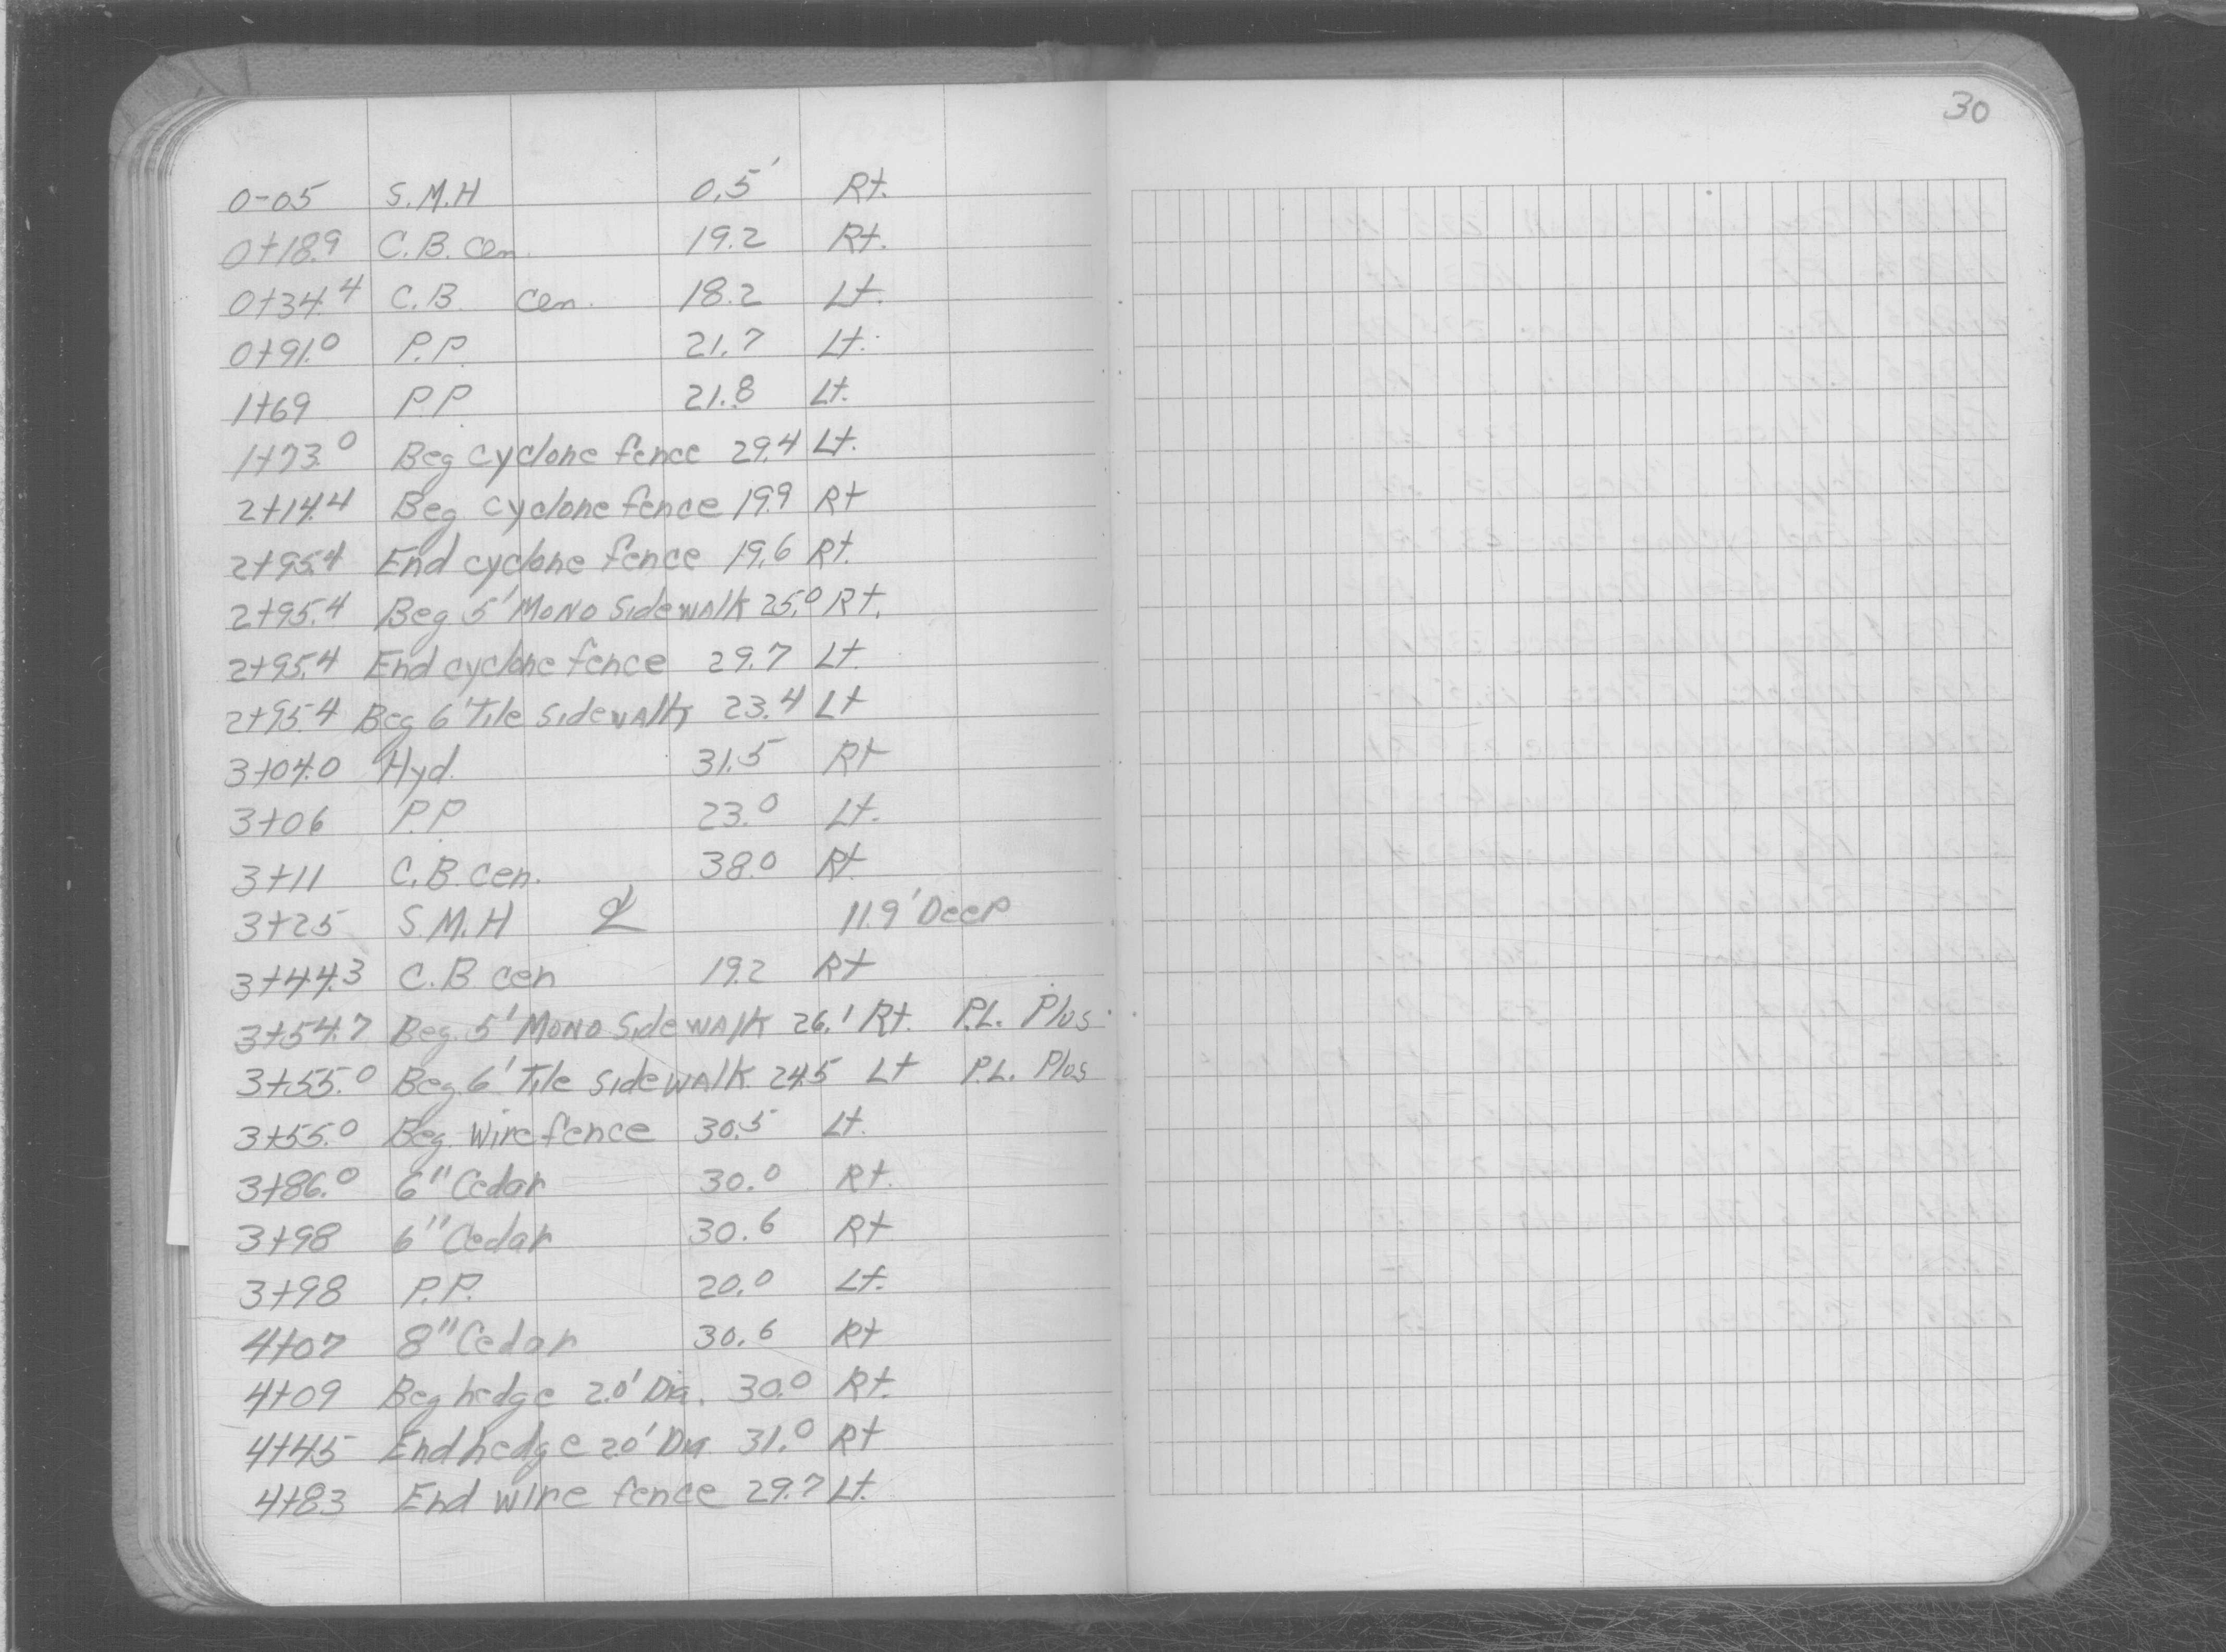 30
0-05 S.M.H 0.5' Rt.
0+18.9 C.B. cen. 19.2 Rt.
0+34.4 C.B. cen. 18.2 Lt.
0+91.0 P.P. 21.7 Lt.
1+69 P.P 21.8 Lt.
1+73.0 Beg cyclone fence 29.4 Lt.
2+14.4 Beg. cyclone fence 19.9 Rt
2+95.4 End cyclone fence 19.6 Rt.
2+95.4 Beg. 5' Mono Sidewalk 25.0 Rt.
2+95.4 End cyclone fence 29.7 Lt.
2+95.4 Beg 6' Tile Sidewalk 23.4 Lt
3+04.0 Hyd. 31.5 Rt
3+06 P.P. 23.0 Lt.
3+11 C.B. cen. 38.0 Rt.
3+25 S.M.H ℄ 11.9' Deep
3+44.3 C.B cen 19.2 Rt
3+54.7 Beg. 5' Mono Sidewalk 26.1 Rt. P.L. Plus
3+55.0 Beg. 6' Tile Sidewalk 24.5 Lt P.L. Plus
3+55.0 Beg. Wire fence 30.5 Lt.
3+86.0 6" Cedar 30.0 Rt.
3+98 6" Cedar 30.6 Rt
3+98 P.P. 20.0 Lt.
4+07 8" Cedar 30.6 Rt
4+09 Beg hedge 2.0' Dia. 30.0 Rt.
4+45 End hedge 2.0' Dia 31.0 Rt
4+83 End wire fence 29.7 Lt.